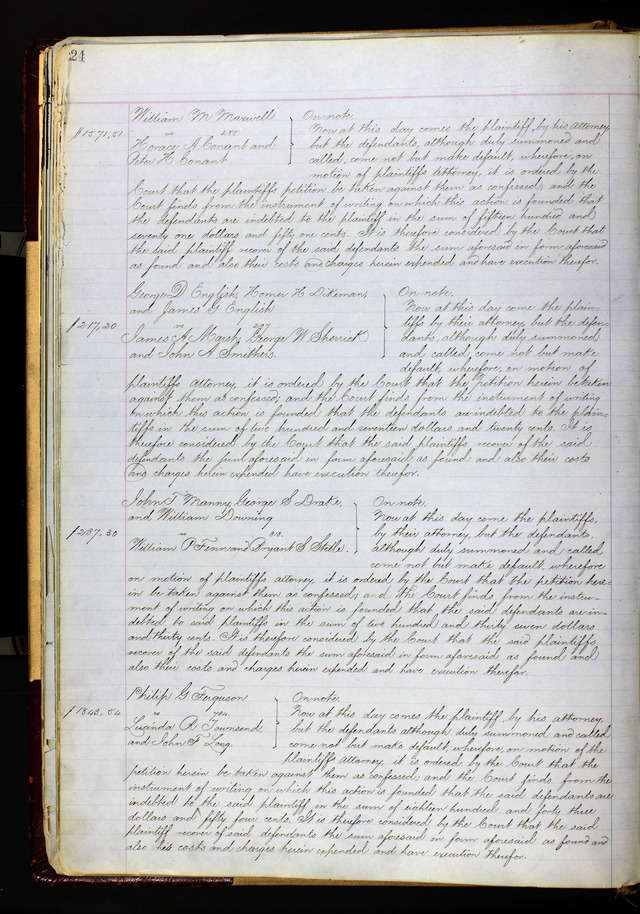 24
William M Maxwell } On note.
$1571,51 vs 285 Now at this day comes the plaintiff, by his Attorney
Horace A Conant and but the defendants, although duly summoned and
Peter H Conant called, come not but make default, wherefore, on
motion of plaintiffs Attorney, it is ordered by the
Court that the plaintiffs petition be taken against them as confessed, and the
Court finds from the instrument of writing on which this action is founded that
the defendants are indebted to the plaintiff in the sum of fifteen hundred and
seventy one dollars and fifty one cents. It is therefore considered by the Court that
the said plaintiff recover of the said defendants the sum aforesaid in form aforesaid
as found and also their costs and charges herein expended and have execution therefor.
George D English, Homer H Dikeman, } On note.
and James G English Now at this day come the plain-
$217,20 vs tiffs by their attorney, but the defen-
James A Marsh, George W Sherrick dants, although duly summoned
and John A Smithers. and called, come not but make
default, wherefore, on motion of
plaintiffs attorney, it is ordered by the Court that the petition herein be taken
against them as confessed, and the Court finds from the instrument of writing
on which this action is founded that the defendants are indebted to the plain-
tiffs in the sum of two hundred and seventeen dollars and twenty cents. It is
therefore considered by the Court that the said plaintiffs recover of the said
defendants the sum aforesaid in form aforesaid as found and also their costs
and charges herein expended have execution therefor.
John T Manny, George S Drake, } On note.
and William Downing Now at this day come the plaintiffs,
$237.30 vs by their attorney, but the defendants,
William P Fenn and Bryant S Stelle. although duly summoned and called
come not but make default, wherefore
on motion of plaintiffs attorney, it is ordered by the Court that the petition here-
in be taken against them as confessed, and the Court finds from the instru-
ment of writing on which this action is founded that the said defendants are in-
debted to said plaintiffs in the sum of two hundred and thirty seven dollars
and thirty cents. It is therefore considered by the Court that the said plaintiffs
recover of the said defendants the sum aforesaid in form aforesaid as found and
also their costs and charges herein expended and have execution therefor.
Philip G Ferguson } On note.
$1843.54 vs 784. Now at this day comes the plaintiff by his attorney,
Lucinda R Townsend, but the defendants although duly summoned and called
and John F Long. come not but make default, wherefore, on motion of the
plaintiffs attorney, it is ordered by the Court that the
petition herein be taken against them as confessed, and the Court finds from the
instrument of writing on which this action is founded that the said defendants are
indebted to the said plaintiff in the sum of eighteen hundred and forty three
dollars and fifty four cents. It is therefore considered by the Court that the said
plaintiff recover of said defendants the sum aforesaid in form aforesaid as found and
also his costs and charges herein expended and have execution therefor.